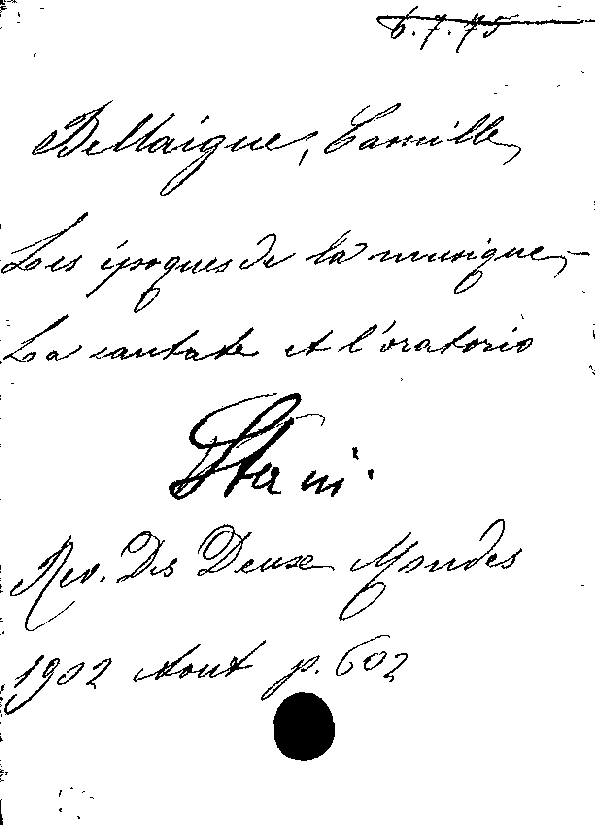 6.7.75
Bellaigue, Camille,
Les époques de la musique,-
La cantate et l'oratorio
Rev. Des Deux Mondes
1902 Aout p. 602